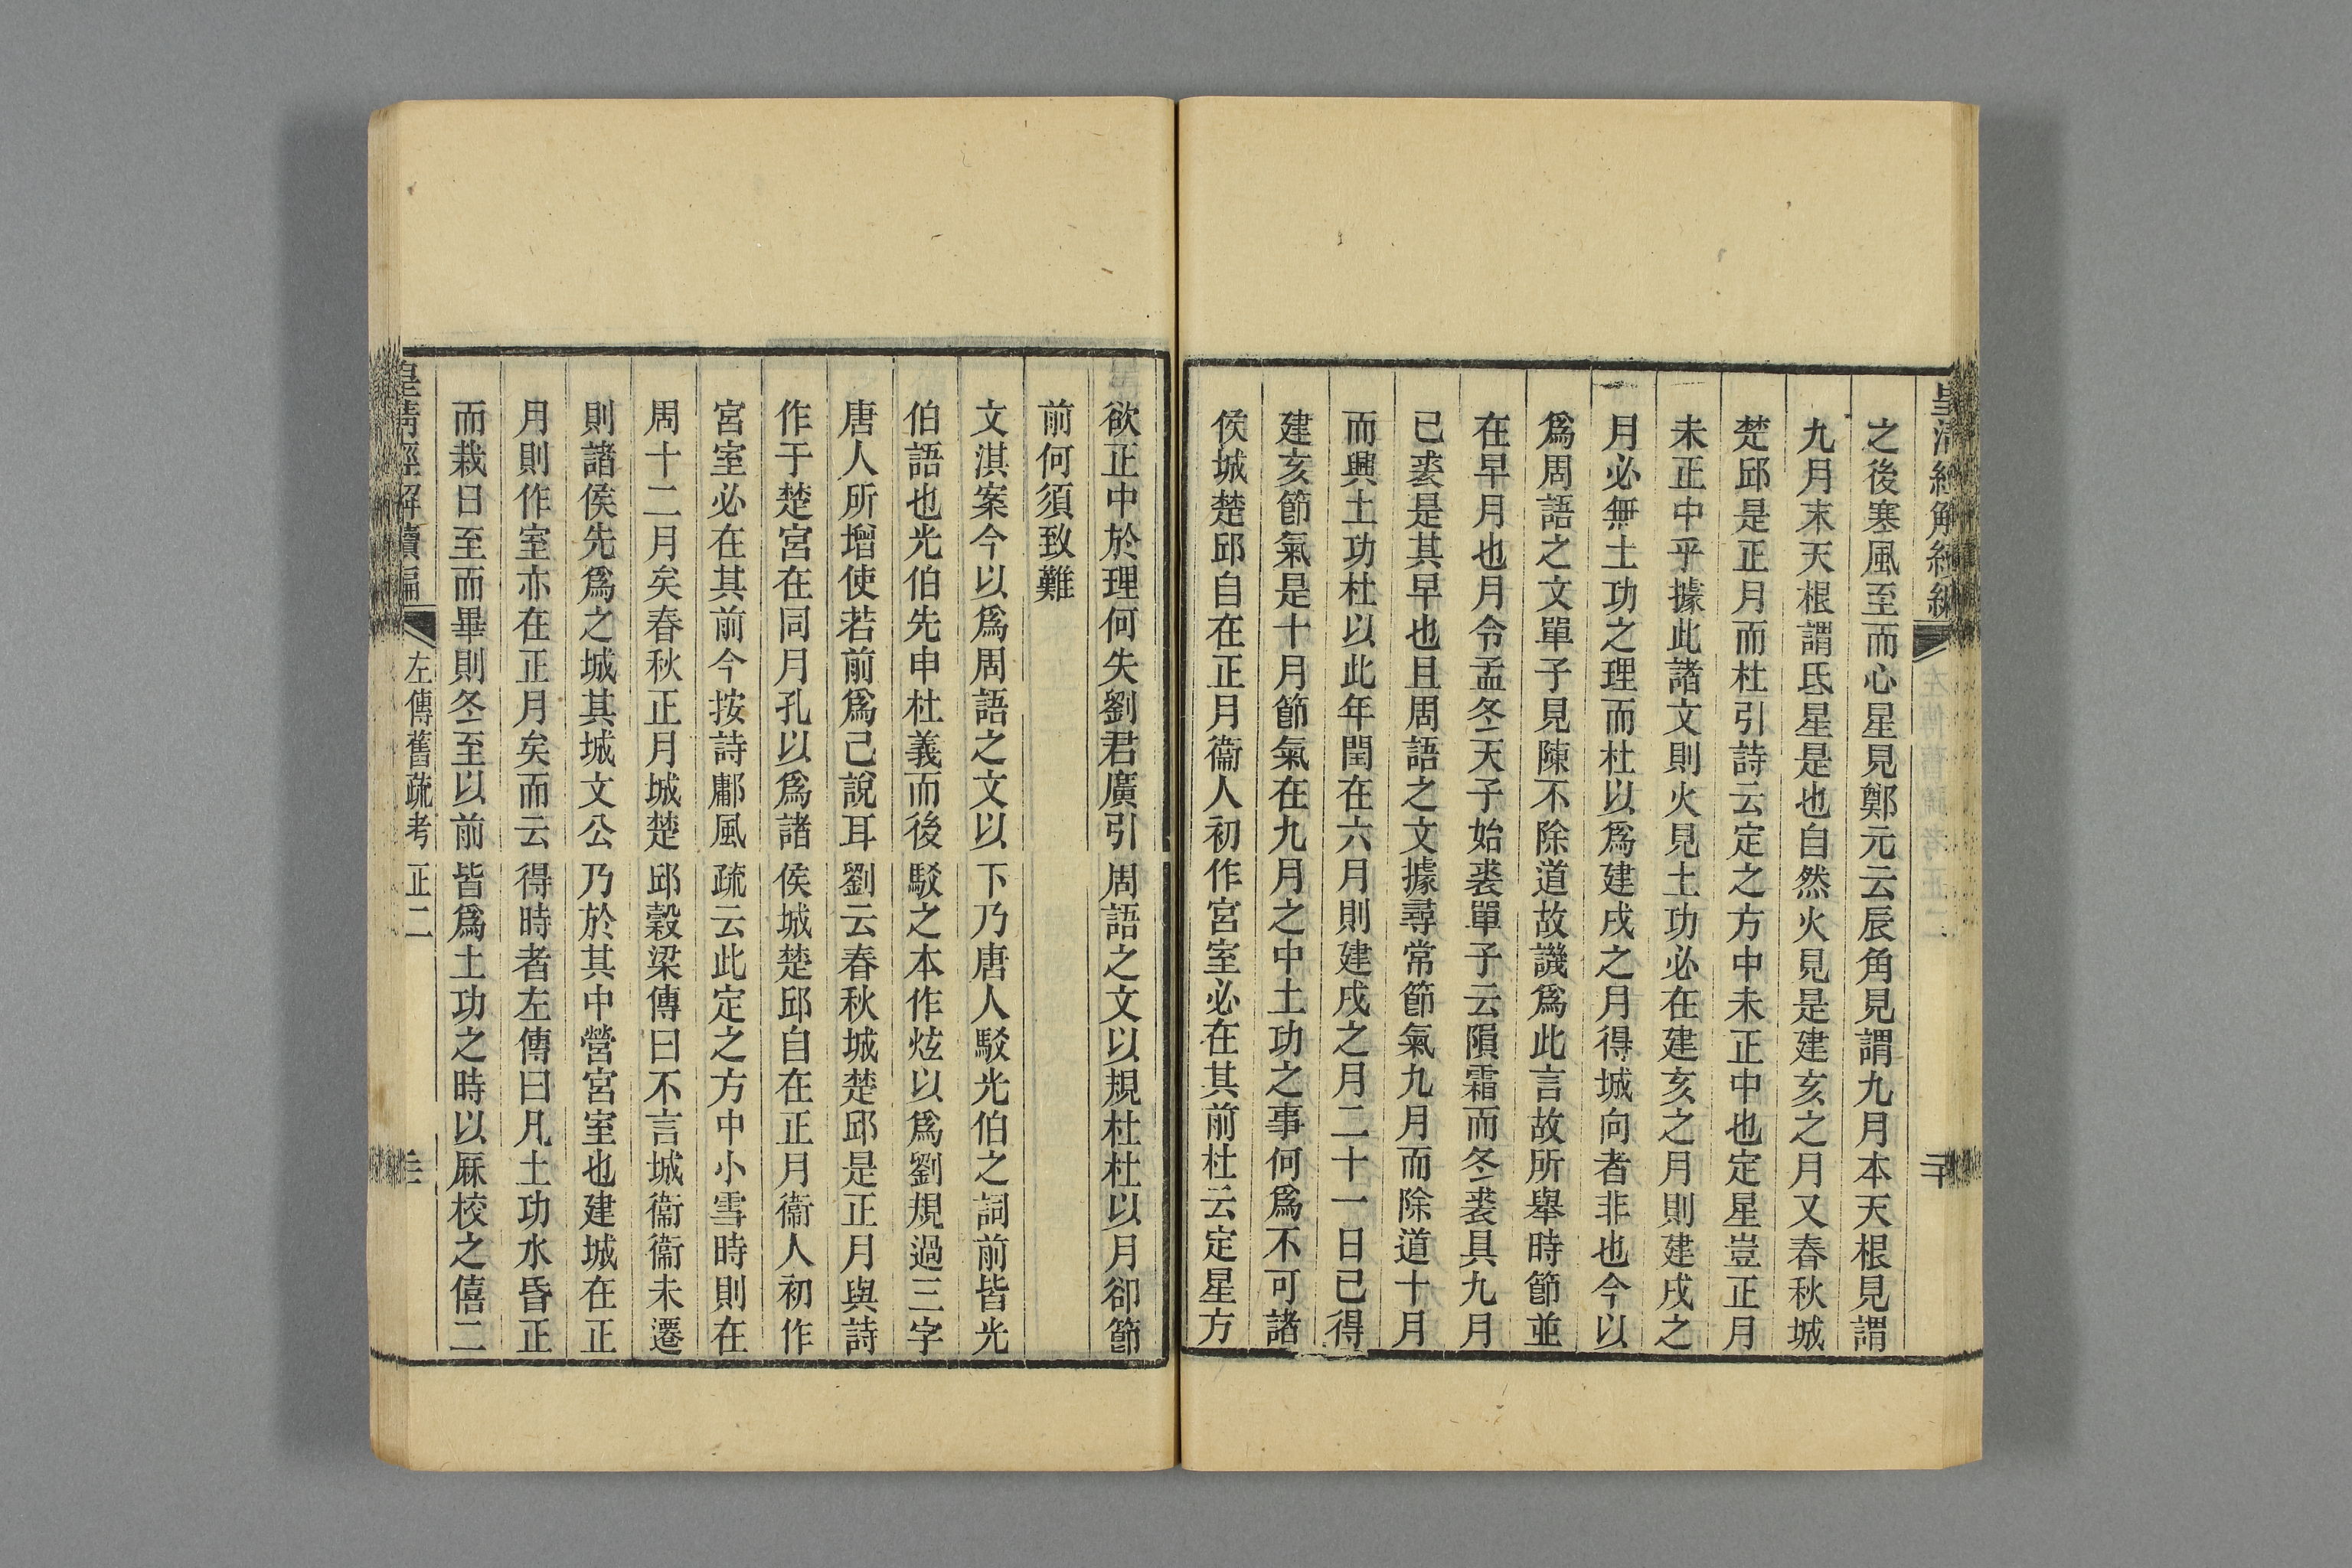 皇清經解續編
之後寒風至而心星見鄭元云辰角見謂九月本天根見謂
九月末天根謂氐星是也自然火見是建亥之月又春秋城
楚邱是正月而杜引詩云定之方中未正中也定星豈正月
未正中乎據此諸文則火見土功必在建亥之月則建戌之
月必無土功之理而杜以爲建戌之月得城向者非也今以
爲周語之文單子見陳不除道故譏爲此言故所舉時節並
在早月也月令孟冬天子始裘單子云隕霜而冬裘具九月
已裘是其早也且周語之文據尋常節氣九月而除道十月
而興土功杜以此年閏在六月則建戌之月二十一日已得
建亥節氣是十月節氣在九月之中土功之事何爲不可諸
侯城楚邱自在正月衞人初作宮室必在其前杜云定星方
欲正中於理何失劉君廣引周語之文以規杜杜以月卻節
前何須致難
文淇案今以爲周語之文以下乃唐人駁光伯之詞前皆光
伯語也光伯先申杜義而後駁之本作炫以爲劉規過三字
唐人所增使若前爲己說耳劉云春秋城楚邱是正月與詩
作于楚宮在同月孔以爲諸侯城楚邱自在正月衞人初作
宮室必在其前今按詩鄘風疏云此定之方中小雪時則在
周十二月矣春秋正月城楚邱穀梁傳曰不言城衞衞未遷
則諸侯先爲之城其城文公乃於其中營宮室也建城在正
月則作室亦在正月矣而云得時者左傳曰凡土功水昏正
而栽日至而畢則冬至以前皆爲土功之時以厤校之僖二
皇清經解續編
左傳舊疏考正二